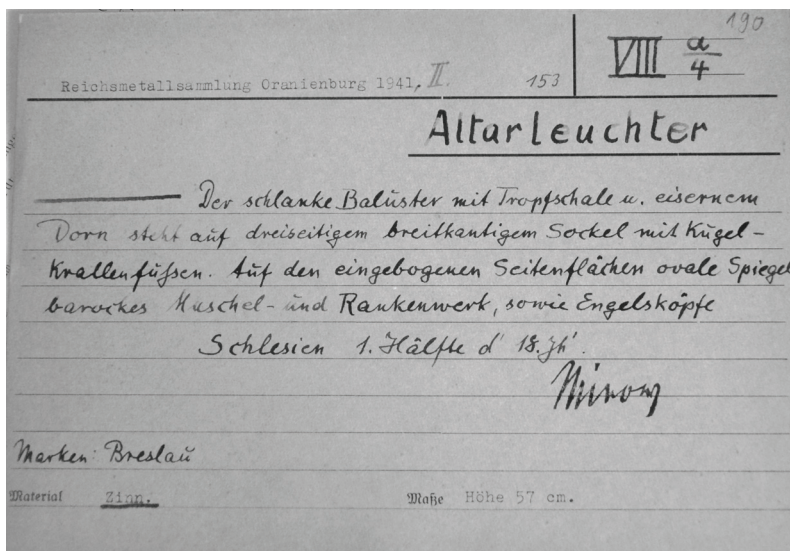 190
Reichsmetallsammlung Oranienburg 1941, II. 153 VIII a/4
Altarleuchter
Der schlanke Baluster mit Tropfschale u. eisernem
Dorn steht auf dreiseitigem breitkantigem Sockel mit Kugel-
Krallenfüssen. Auf den eingebogenen Seitenflächen ovale Spiegel
barockes Muschel- und Rankenwerk, sowie Engelsköpfe
Schlesien 1. Hälfte d' 18. Jh'.
Marken: Breslau
Material Zinn. Maße Höhe 57 cm.